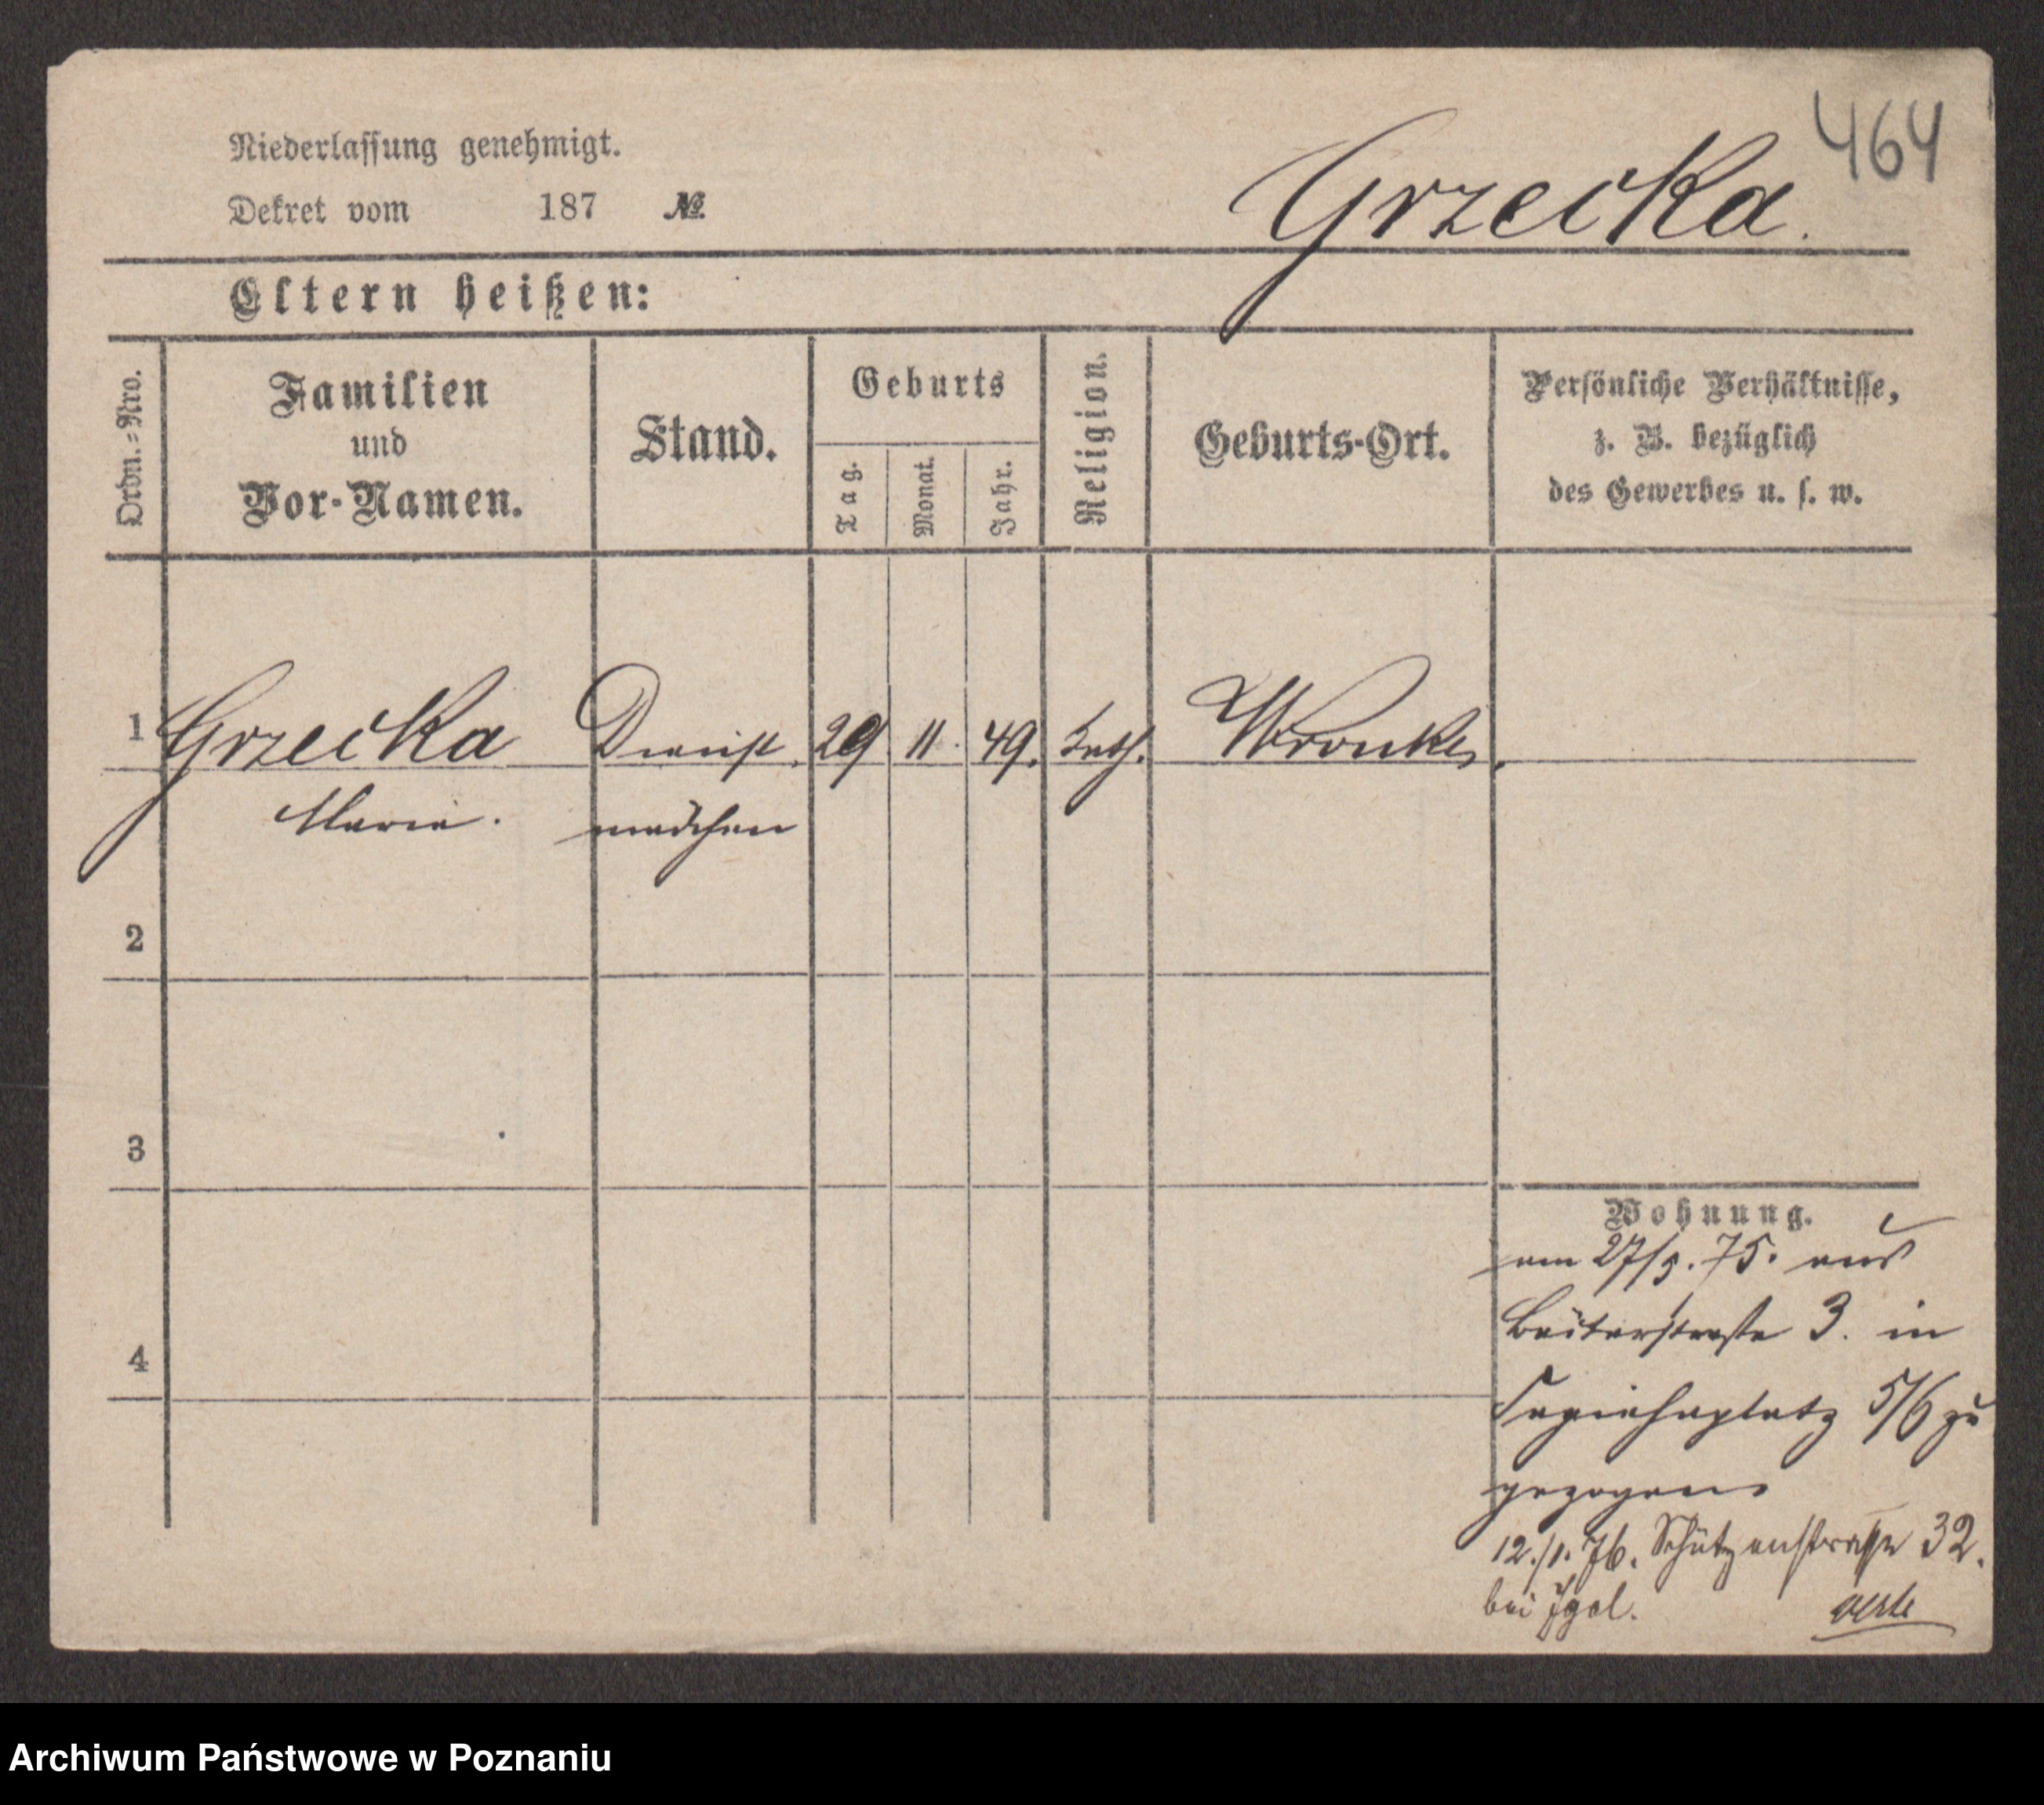 464
Niederlassung genehmigt.
Dekret vom 187 №
Grzecka.
Eltern heißen:
Ordn.=Nro.
Familien
und
Vor-Namen.
Stand.
Geburts
Tag.
Monat.
Jahr.
Religion.
Geburts-Ort.
Persönliche Verhältnisse,
z. B. bezüglich
des Gewerbes u. s. w.
1 Grzecka Dienst 29 11. 49. kath. Wronke
Marie. mädchen
2
3
4
Wohnung.
am 27/5. 75. aus
3. in
Sapiehaplatz 5/6 zu
gezogen
12./1. 76. Schützenstraße 32.
bei
Archiwum Państwowe w Poznaniu